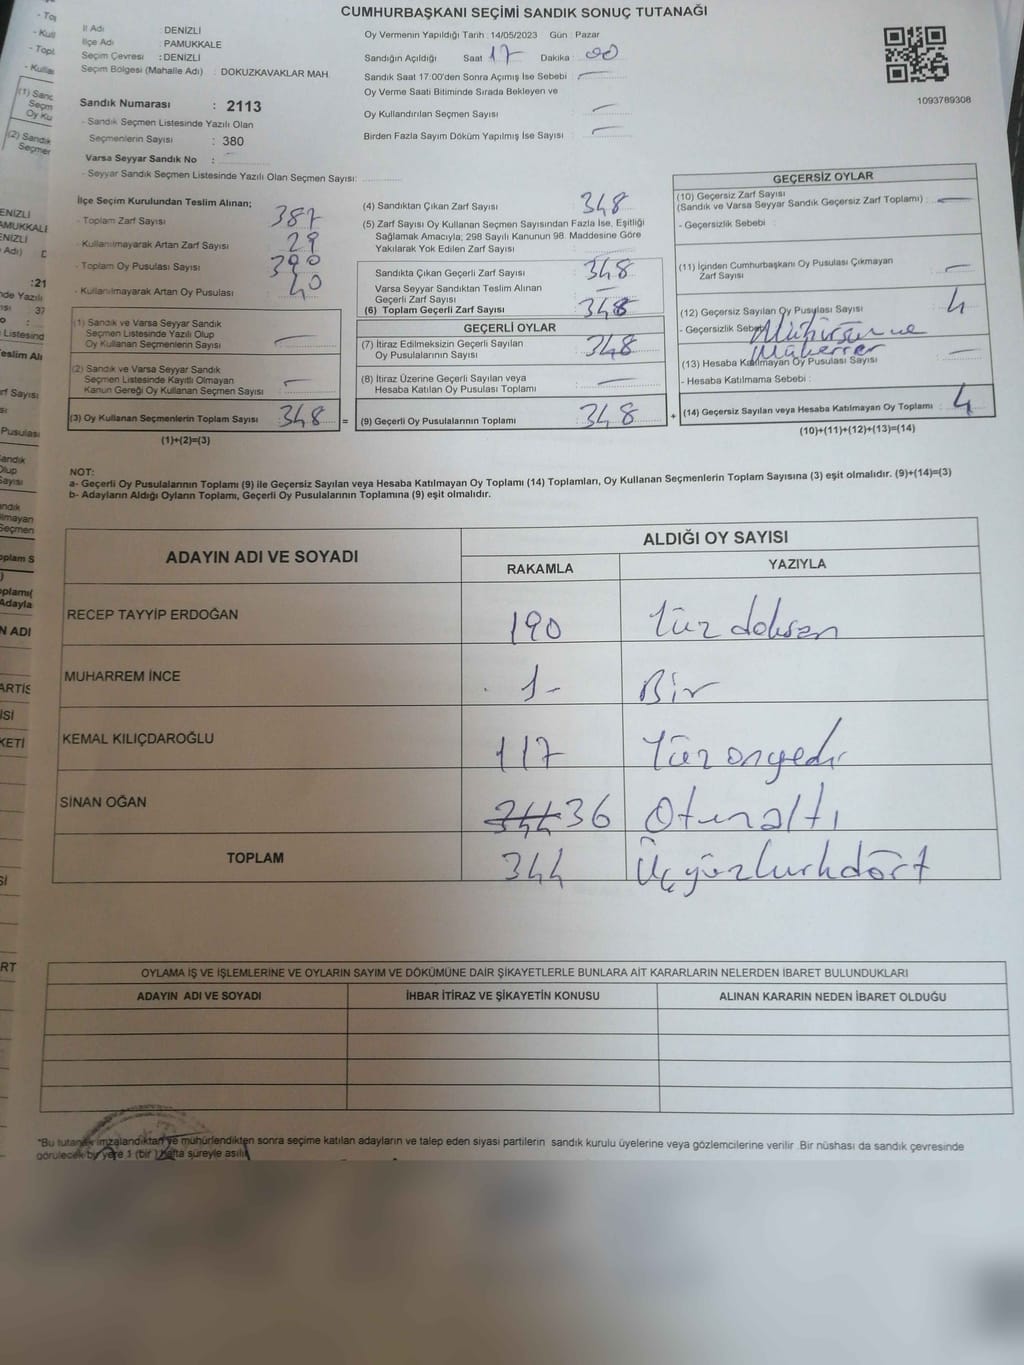 CUMHURBAŞKANI SEÇİMİ SANDIK SONUÇ TUTANAĞI
İl Adı : DENİZLİ
İlçe Adı : PAMUKKALE
Seçim Çevresi : DENİZLİ
Seçim Bölgesi (Mahalle Adı) : DOKUZKAVAKLAR MAH.
Sandık Numarası : 2113
- Sandık Seçmen Listesinde Yazılı Olan
Seçmenlerin Sayısı : 380
Varsa Seyyar Sandık No :
- Seyyar Sandık Seçmen Listesinde Yazılı Olan Seçmen Sayısı:
Oy Vermenin Yapıldığı Tarih : 14/05/2023 Gün : Pazar
Sandığın Açıldığı Saat 17 Dakika : 00
Sandık Saat 17:00'den Sonra Açılmış İse Sebebi :
Oy Verme Saati Bitiminde Sırada Bekleyen ve
Oy Kullandırılan Seçmen Sayısı
Birden Fazla Sayım Döküm Yapılmış İse Sayısı
1093789308
İlçe Seçim Kurulundan Teslim Alınan;
- Toplam Zarf Sayısı : 387
- Kullanılmayarak Artan Zarf Sayısı 29
- Toplam Oy Pusulası Sayısı : 390
- Kullanılmayarak Artan Oy Pusulası : 40
(1) Sandık ve Varsa Seyyar Sandık
Seçmen Listesinde Yazılı Olup
Oy Kullanan Seçmenlerin Sayısı
(2) Sandık ve Varsa Seyyar Sandık
Seçmen Listesinde Kayıtlı Olmayan
Kanun Gereği Oy Kullanan Seçmen Sayısı
(3) Oy Kullanan Seçmenlerin Toplam Sayısı 348 =
(1)+(2)=(3)
(4) Sandıktan Çıkan Zarf Sayısı : 348
(5) Zarf Sayısı Oy Kullanan Seçmen Sayısından Fazla İse, Eşitliği
Sağlamak Amacıyla; 298 Sayılı Kanunun 98. Maddesine Göre
Yakılarak Yok Edilen Zarf Sayısı
Sandıkta Çıkan Geçerli Zarf Sayısı : 348
Varsa Seyyar Sandıktan Teslim Alınan
Geçerli Zarf Sayısı
(6) Toplam Geçerli Zarf Sayısı : 348
GEÇERLİ OYLAR
(7) İtiraz Edilmeksizin Geçerli Sayılan
Oy Pusulalarının Sayısı : 348
(8) İtiraz Üzerine Geçerli Sayılan veya
Hesaba Katılan Oy Pusulası Toplamı
(9) Geçerli Oy Pusulalarının Toplamı : 348 +
GEÇERSİZ OYLAR
(10) Geçersiz Zarf Sayısı
(Sandık ve Varsa Seyyar Sandık Geçersiz Zarf Toplamı) :
- Geçersizlik Sebebi :
(11) İçinden Cumhurbaşkanı Oy Pusulası Çıkmayan
Zarf Sayısı
(12) Geçersiz Sayılan Oy Pusulası Sayısı : 4
- Geçersizlik Sebebi
(13) Hesaba Katılmayan Oy Pusulası Sayısı
- Hesaba Katılmama Sebebi :
(14) Geçersiz Sayılan veya Hesaba Katılmayan Oy Toplamı : 4
(10)+(11)+(12)+(13)=(14)
NOT:
a- Geçerli Oy Pusulalarının Toplamı (9) ile Geçersiz Sayılan veya Hesaba Katılmayan Oy Toplamı (14) Toplamları, Oy Kullanan Seçmenlerin Toplam Sayısına (3) eşit olmalıdır. (9)+(14)=(3)
b- Adayların Aldığı Oyların Toplamı, Geçerli Oy Pusulalarının Toplamına (9) eşit olmalıdır.
ADAYIN ADI VE SOYADI ALDIĞI OY SAYISI
RAKAMLA YAZIYLA
RECEP TAYYİP ERDOĞAN 190 Yüz doksan
MUHARREM İNCE 1- Bir
KEMAL KILIÇDAROĞLU 117 Yüz onyedi
SİNAN OĞAN 344 36 Otuzaltı
TOPLAM 344 Üçyüzkırkdört
OYLAMA İŞ VE İŞLEMLERİNE VE OYLARIN SAYIM VE DÖKÜMÜNE DAİR ŞİKAYETLERLE BUNLARA AİT KARARLARIN NELERDEN İBARET BULUNDUKLARI
ADAYIN ADI VE SOYADI İHBAR İTİRAZ VE ŞİKAYETİN KONUSU ALINAN KARARIN NEDEN İBARET OLDUĞU
"Bu tutanak imzalandıktan ve mühürlendikten sonra seçime katılan adayların ve talep eden siyasi partilerin sandık kurulu üyelerine veya gözlemcilerine verilir. Bir nüshası da sandık çevresinde
görülecek bir yere 1 (bir) hafta süreyle asılır.